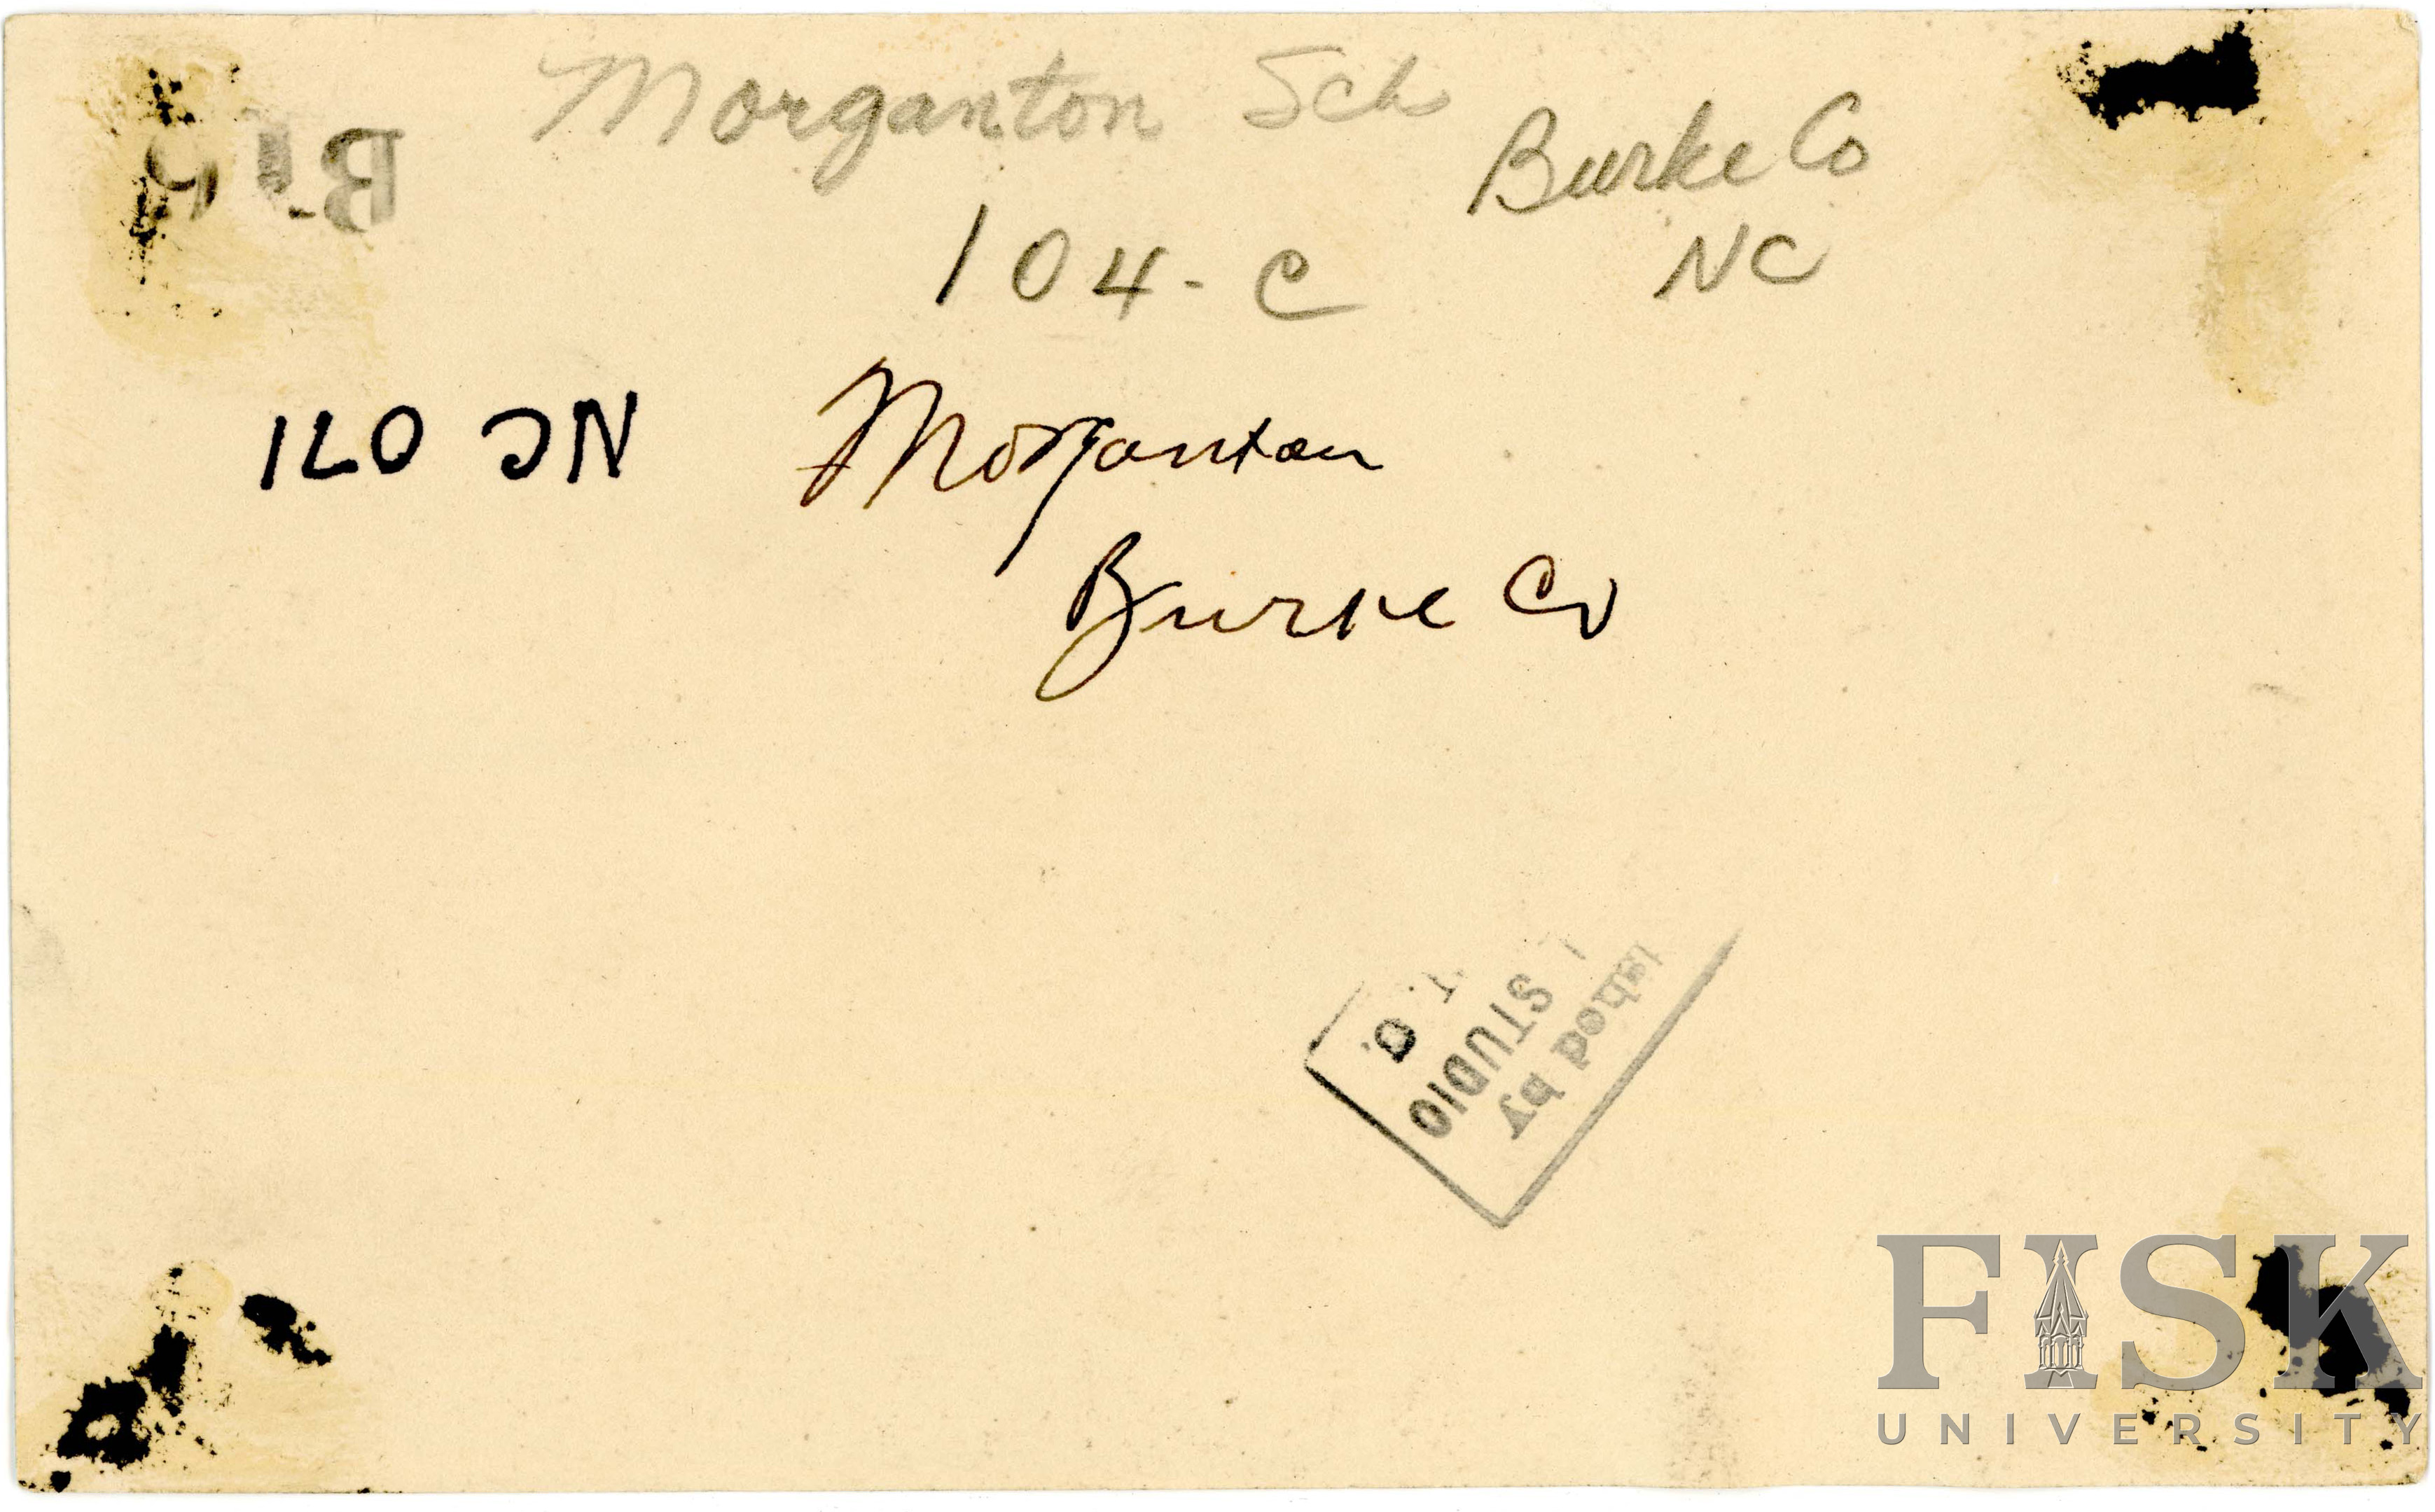 Morganton Sch
Burke Co
104-C
NC
NC 071
Morganton
Burke Co
ished by
STUDIO
FISK
UNIVERSITY